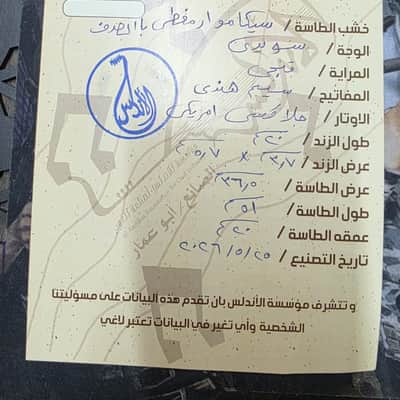 خشب الطاسة / سيكاموار مغطى بالصدف
الوجة / سويدي
المراية /
المفاتيح / سيسم هندي
الاوتار / امريكي
طول الزند / ٢٠
عرض الزند / ٣,٧ × ٥,٧
عرض الطاسة / ٣٦,٥
طول الطاسة / ٥١
عمقه الطاسة / ٢٠
تاريخ التصنيع / ٢٠٢٦/٥/٢٥
الأندلس
الصانع / ابو عمار
و تتشرف مؤسسة الأندلس بان تقدم هذه البيانات على مسؤليتنا
الشخصية وأي تغير في البيانات تعتبر لاغي